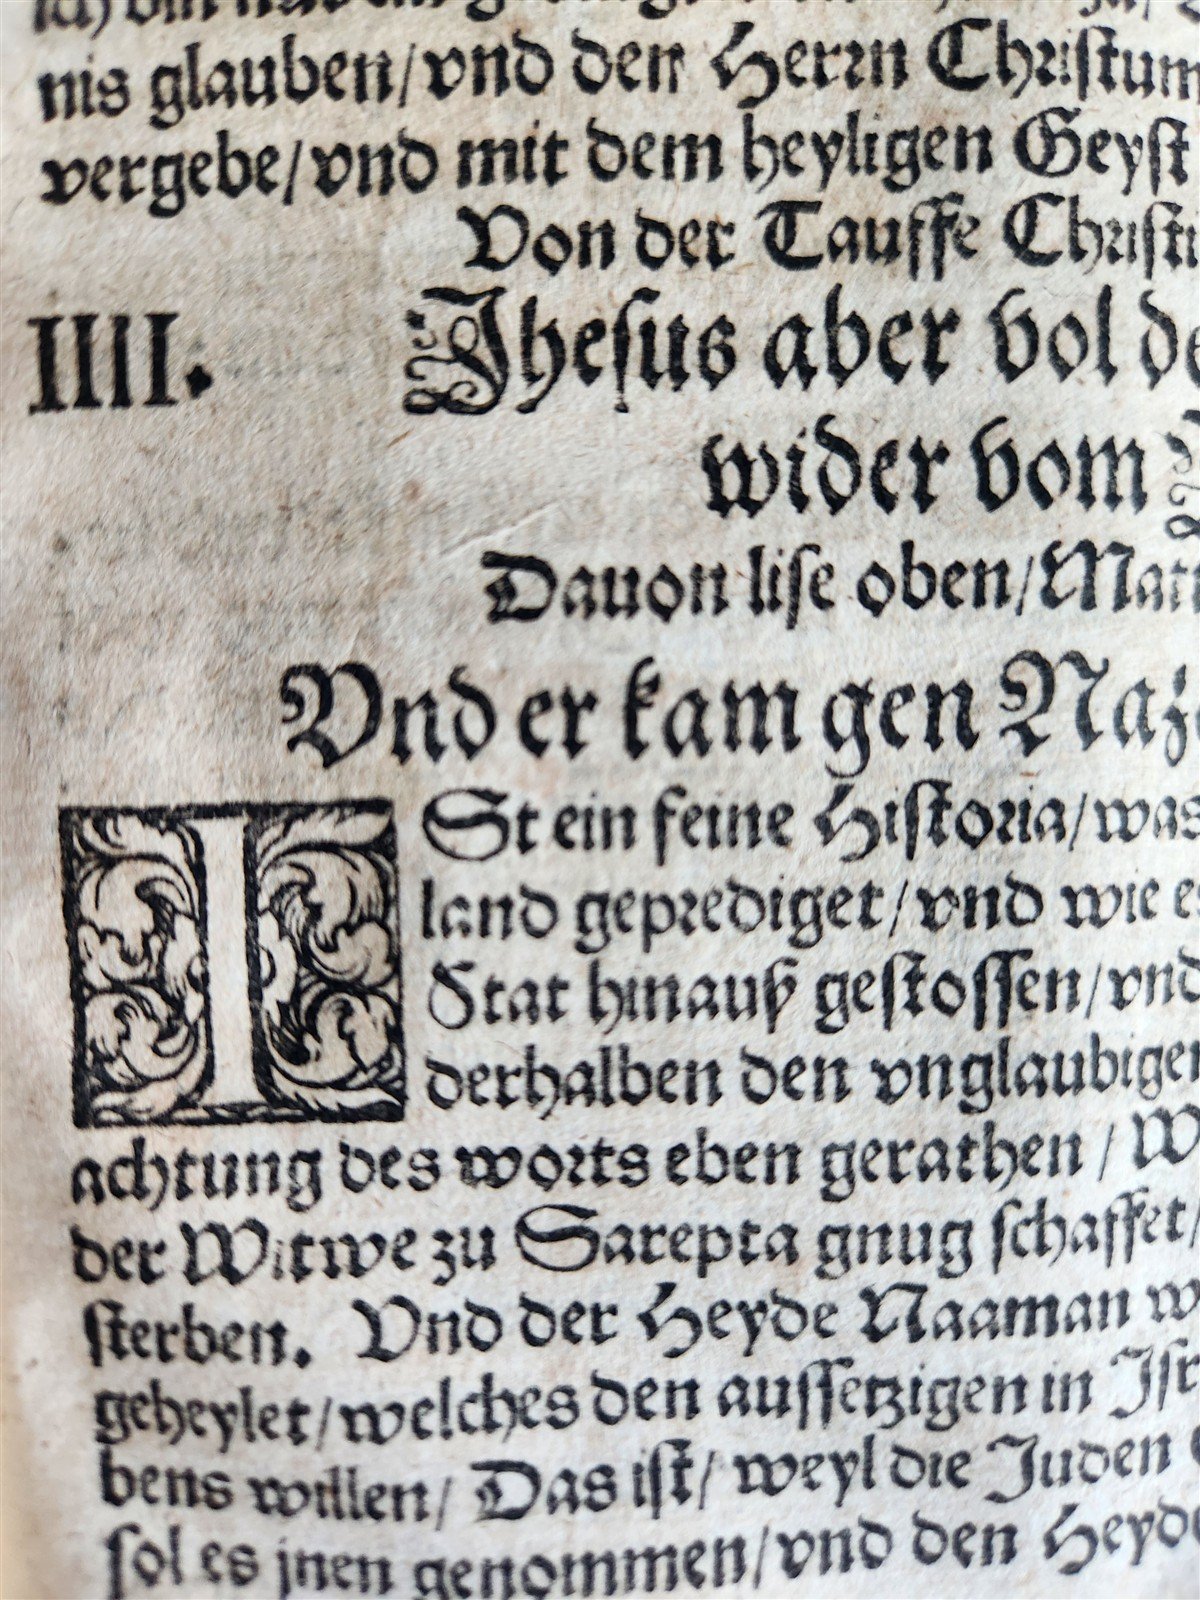 nis glauben/vnd den Herrn Christum
vergebe/vnd mit dem heyligen Geyst
Von der Tauffe Christi
IIII. Jhesus aber vol de
wider vom
Dauon lise oben/Matt
Vnd er kam gen Naz
ISt ein feine Historia/was
land geprediget/vnd wie e
Stat hinauß gestossen/vnd
derhalben den vnglaubigen
achtung des worts eben gerathen/W
der Witwe zu Sarepta gnug schaffet/
sterben. Vnd der Heyde Naaman w
geheylet/welches den aussetzigen in Isr
bens willen/Das ist/weyl die Juden
sol es jnen genommen/vnd den Heyd